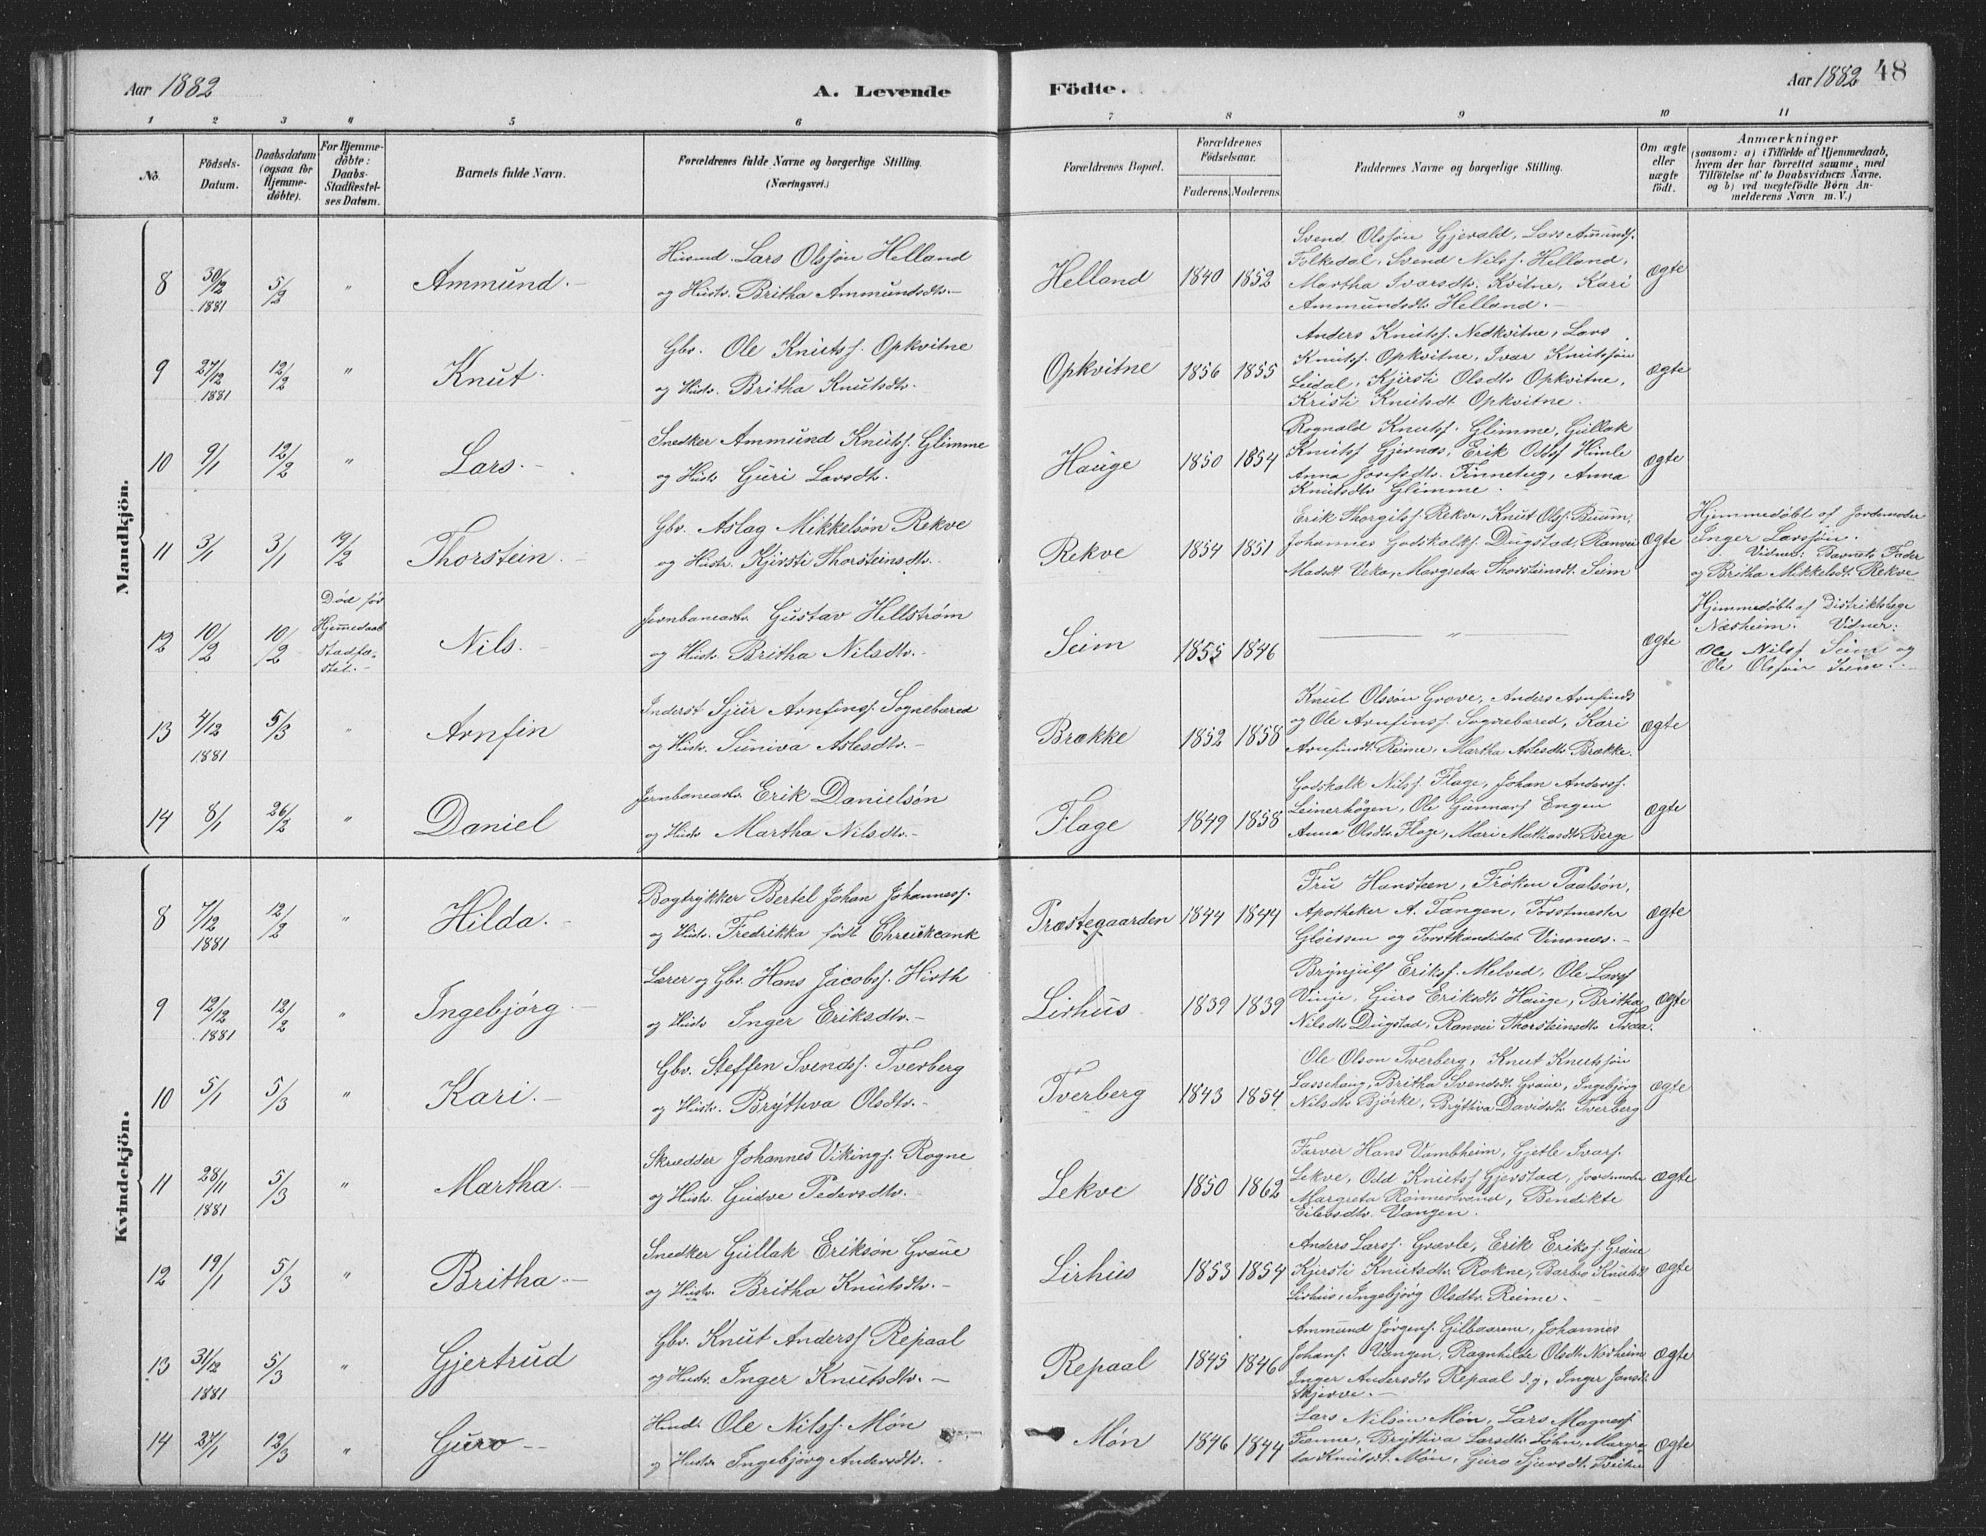 Aar 1882
A. Levende Födte.
Aar 1882
48
1 2 3 4 5 6 7 8 9 10 11
No.
Födsels-Datum.
Daabsdatum (ogsaa for Hjemme-döbte).
For Hjemme-döbte: Daabs-Stadfæstel-ses Datum.
Barnets fulde Navn.
Forældrenes fulde Navne og borgerlige Stilling. (Næringsvei.)
Forældrenes Bopæl.
Forældrenes Födselsaar.
Faderens. Moderens.
Faddernes Navne og borgerlige Stilling.
Om ægte eller uægte födt.
Anmærkninger
(saasom: a) i Tilfælde af Hjemmedaab,
hvem der har forrettet samme, med
Tilföielse af to Daabsvidners Navne,
og b) ved uægtefödte Börn An-
melderens Navn m. V.)
Mandkjön.
8 30/12 1881 5/2 " Ammund.
Husmd. Lars Olsjøn Helland
og Hustr. Britha Ammundsdtr.
Helland 1840 1852
Svend Olssøn Gjerald, Lars Amunds.
Folkedal, Svend Nilss. Helland,
Martha Ivarsdtr. Kvitne, Kari
Ammundsdtr. Helland.
Ægte
9 27/12 1881 12/2 " Knut
Gbr. Ole Knuts. Opkvitne
og Hustr. Britha Knutsdtr.
Opkvitne 1856 1855
Anders Knuts. Nedkvitne, Lars
Knuts. Opkvitne, Ivar Knutssøn
Leidal, Kjersti Olsdtr. Opkvitne,
Kristi Knutsdt Opkvitne.
Ægte
10 9/1 12/2 " Lars.
Snedker Ammund Knuts. Glimme
og Hustr Guri Larsdtr.
Hauge 1850 1854
Rognald Knuts. Glimme, Gullak
Knuts. Gjernes, Erik Odds. Himle
Anna Josefsdtr. Finneteg, Anna
Knutsdtr Glimme.
Ægte
11 3/1 3/1 19/2 Thorstein.
Gbr. Aslag Mikkelsøn Rekve
og Hustr. Kjersti Thorsteinsdtr.
Rekve 1854 1851
Erik Thorgils. Rekve, Knut Ols. Buum,
Johannes Godskalks. Dugstad, Ranvei
Madsdt Veka, Margreta Thorsteinsdt. Seim
Ægte
Hjemmedøbt af Jordemoder
Inger Larssøn.
Vidner: Barnets Fader
og Britha Mikkelsdt. Rekve
12 10/2 10/2 Død før Hjemmedaab Stadfæ-stel. Nils.
Jernbanearbr. Gustav Hellstrøm
og Hustr. Britha Nilsdtr.
Seim 1855 1846
"
Ægte
Hjemmedøbt af Distriktslæge
Næsheim. Vidner:
Ole Nils. Seim og
Ole Olssøn Seim.
13 4/12 1881 5/3 " Arnfin
Inderst Sjur Arnfins. Sognebæred
og Hustr. Suniva Aslesdtr.
Brække 1852 1858
Knut Olssøn Grove, Anders Arnfinds
og Ole Arnfinss. Sognebæred, Kari
Arnfinsdt Reime, Martha Aslesdtr Brække.
Ægte
14 8/1 26/2 " Daniel
Jernbanearbr. Erik Danielsøn
og Hustr Martha Nilsdtr.
Flage 1849 1858
Godskalk Nils. Flage, Johan Anders.
Leinerhögen, Ole Gunnars. Engen
Anna Olsdtr. Flage, Mari Mathiasdtr. Berge
Ægte
Kvindekjön.
8 7/12 1881 12/2 " Hilda.
Bogtrykker Bertel Johan Johanness.
og Hustr. Fredrikka født
Præstegaarden 1844 1844
Fru Hansteen, Frøken Paalsøn,
Apotheker A. Tangen, Forstmester
Gløissen og Forstkandidat Vinsnæs.
Ægte
9 12/12 1881 12/2 " Ingebjørg.
Lærer og Gbr. Hans Jacobs. Hirth
og Hustr Inger Eriksdtr.
Lirhus 1839 1839
Brynjulf Eriks. Melved, Ole Lars.
Vinje, Guro Eriksdtr Hauge, Britha
Nilsdtr Dugstad, Ranvei Thorsteinsdtr Tvda.
Ægte
10 5/1 5/3 " Kari.
Gbr. Steffen Svends. Tverberg
og Hustr. Brytteva Olsdtr.
Tverberg 1843 1854
Ole Olson Tverberg, Knut Knutsjøn
Lassehaug, Britha Svendsdt. Graue, Ingebjørg
Nilsdtr Bjørke, Brytteva Davidsdt. Tverberg
Ægte
11 28/11 1881 5/3 " Martha.
Skrædder Johannes Vikings. Rogne
og Hustr. Gudve Pedersdtr.
Lekve 1850 1862
Farver Hans Vambheim, Gjetle Ivars.
Lekve, Odd Knuts. Gjerstad, Jordmoder
Margreta Rønnestrand, Bendikte
Eilevsdtr. Vangen.
Ægte
12 19/1 5/3 " Britha.
Snedker Gullak Eriksøn Graue
og Hustr. Britha Knutsdtr.
Lirhus 1853 1854
Anders Larss. Grævle, Erik Eriks. Graue
Kjersti Knutsdtr Rokne, Barbro Knutsdt
Lirhus, Ingebjørg Olsdtr. Reime.
Ægte
13 31/12 1881 5/3 " Gjertrud
Gbr. Knut Anders. Repaal
og Hustr. Inger Knutsdtr.
Repaal 1845 1846
Ammund Jørgens. Gilbaarene, Johannes
Johans. Vangen, Ragnhilde Olsdt. Norheim
Inger Andersdtr Repaal d.y, Inger Jonsdt.
Skjerve.
Ægte
14 27/1 12/3 " Guro
Husmd. Ole Nilss. Møn
og Hustr Ingebjørg Andersdtr.
Møn 1846 1844
Lars Nilsøn Møn, Lars Magnes.
Fenne, Brytteva Larsdtr. Løhn, Margre-
ta Knutsdt Møn, Guro Sjursdt.
Ægte